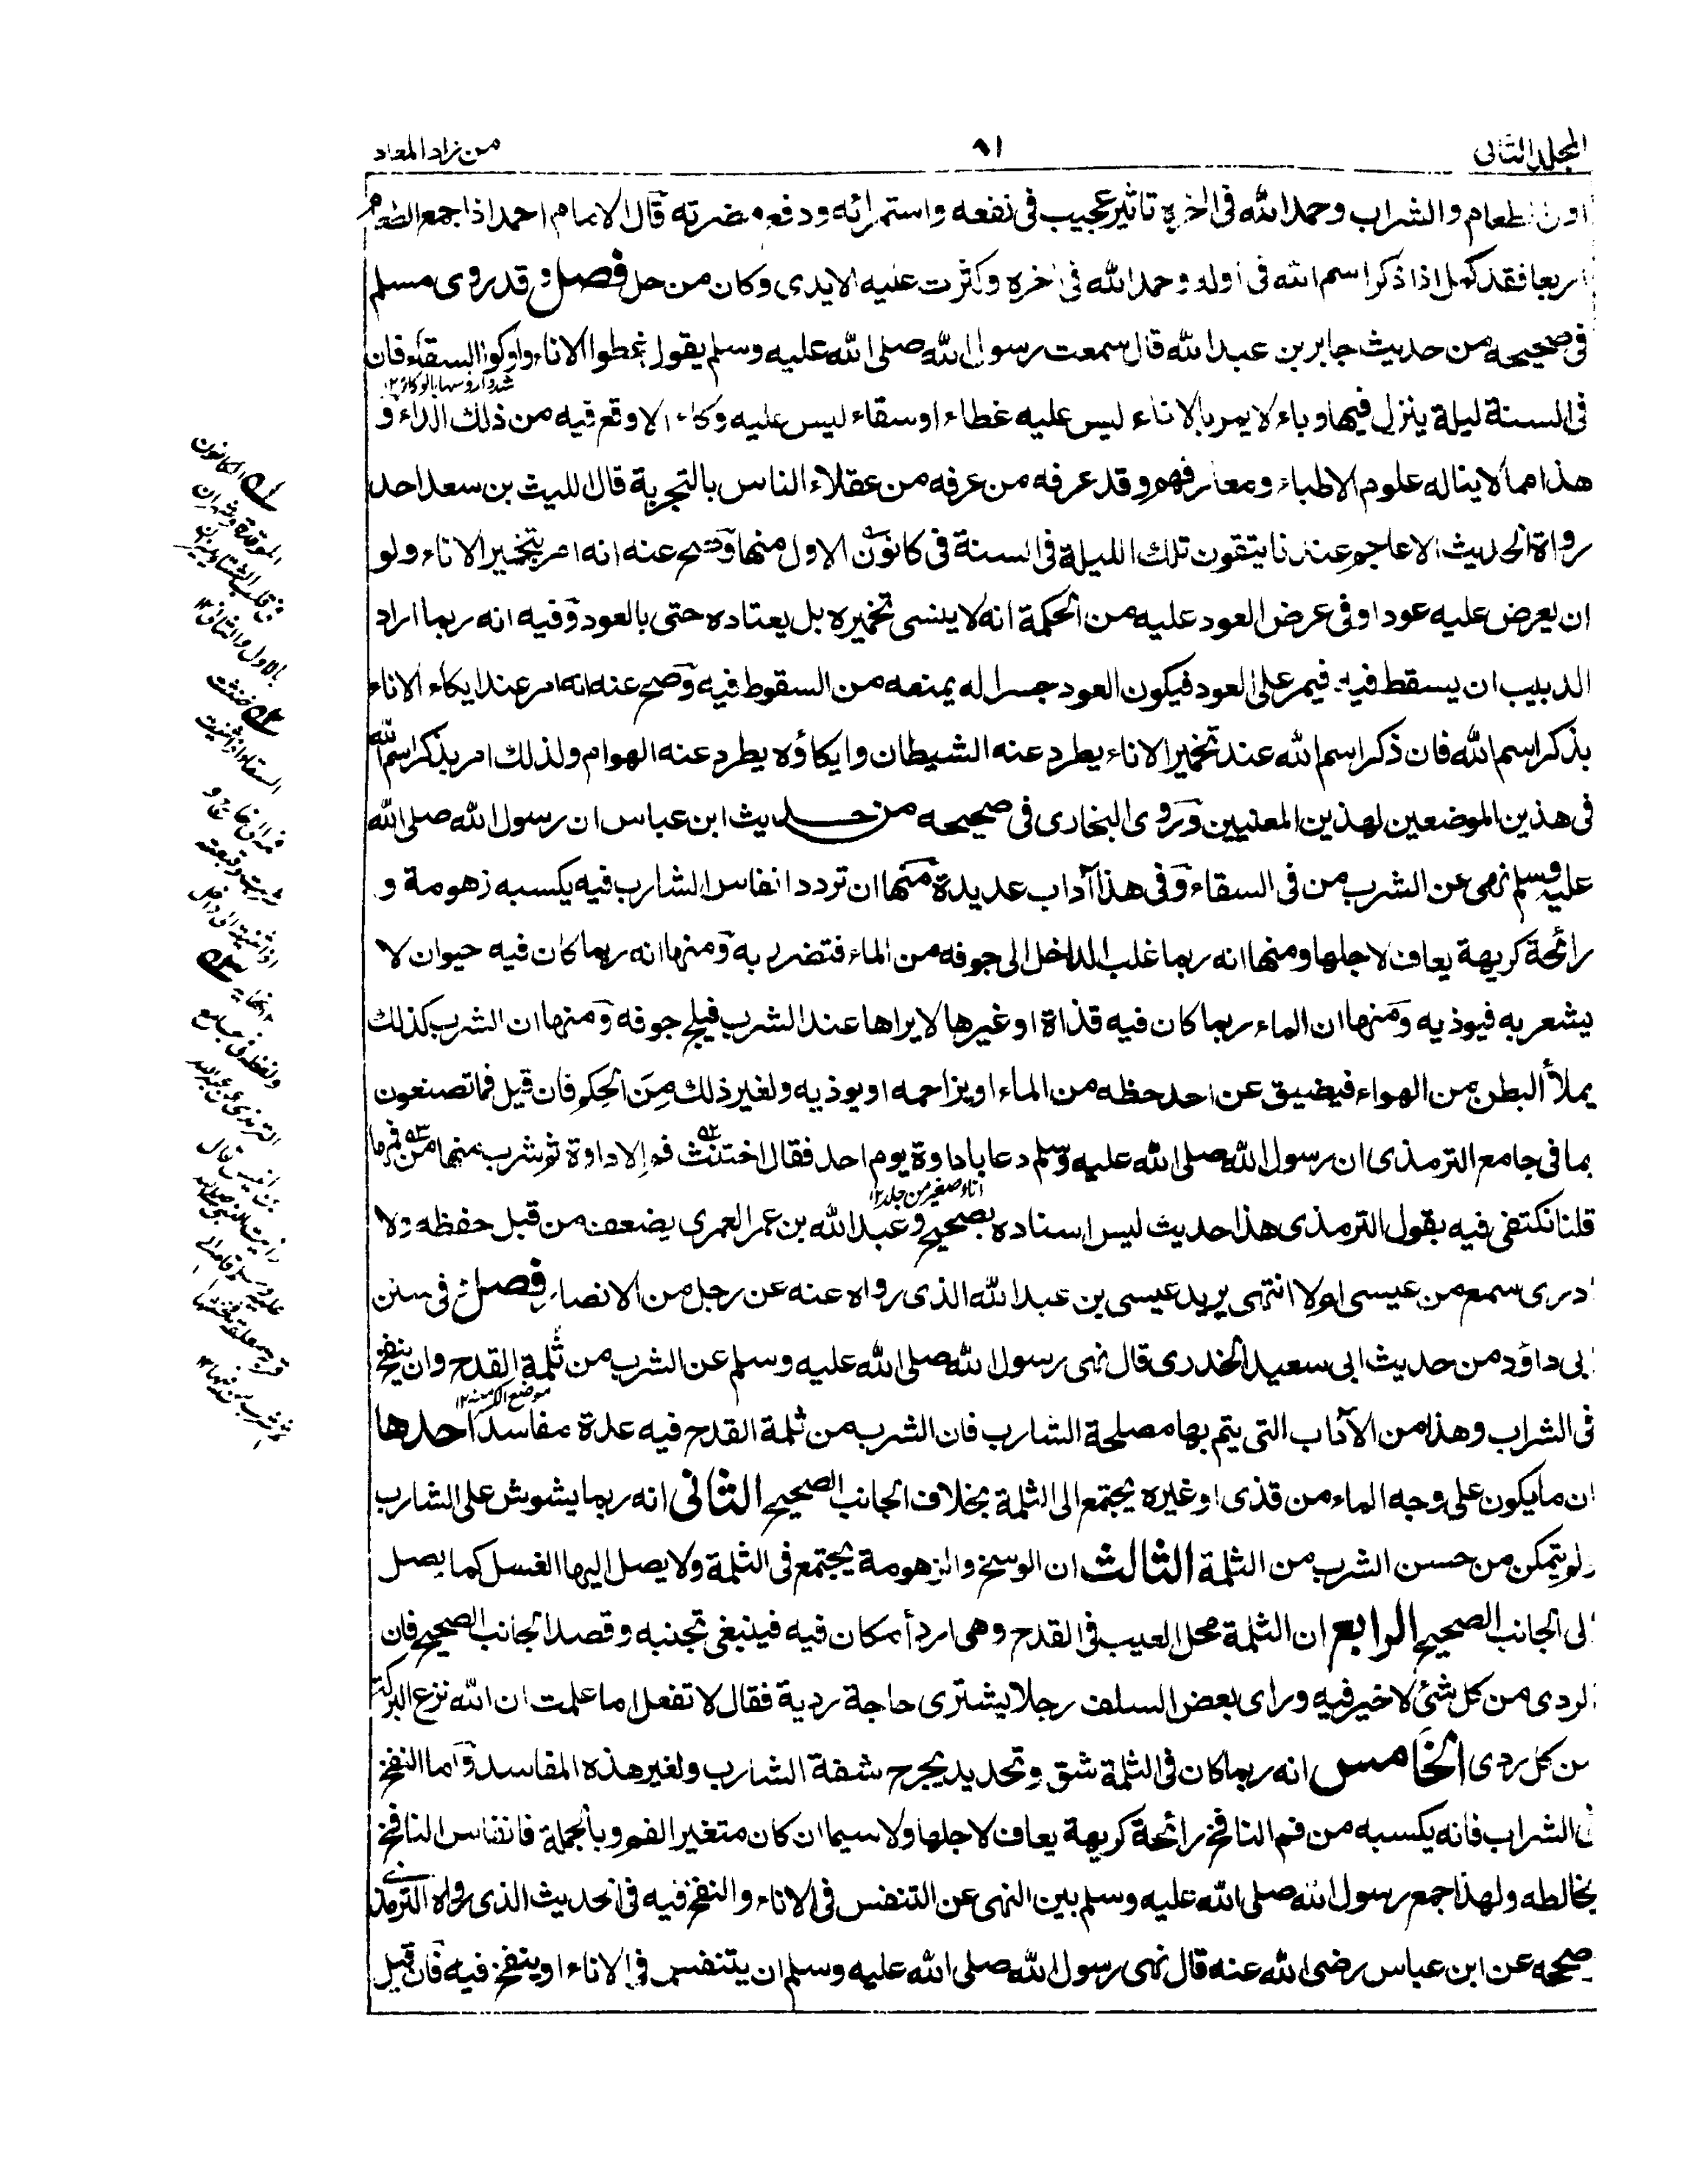 المجلد الثانى
٩١
من زاد المعاد
اول الطعام والشراب وحمد الله فى اخره تاثير عجيب فى نفعه واستمرائه ودفع مضرته قال الامام احمد اذا جمع الطعام
اربعا فقد كمل اذا ذكر اسم الله فى اوله وحمد الله فى اخره وكثرت عليه الايدى وكان من حل فصل وقد روى مسلم
فى صحيحه من حديث جابر بن عبد الله قال سمعت رسول الله صلى الله عليه وسلم يقول غطوا الاناء واوكوا السقاء فان
شدوا رؤسها بالوكاء ١٢
فى السنة ليلة ينزل فيها وباء لا يمر باناء ليس عليه غطاء او سقاء ليس عليه وكاء الا وقع فيه من ذلك الداء و
هذا مما لا يناله علوم الاطباء ومعارفهم وقد عرفه من عرفه من عقلاء الناس بالتجربة قال الليث بن سعد احد
رواة الحديث الاعاجم عندنا يتقون تلك الليلة فى السنة فى كانون الاول منها وصح عنه انه امر بتخمير الاناء ولو
ان يعرض عليه عودا وفى عرض العود عليه من الحكمة انه لا ينسى تخميره بل يعتاده حتى بالعود وفيه انه ربما اراد
الدبيب ان يسقط فيه فيمر على العود فيكون العود جسرا له يمنعه من السقوط فيه وصح عنه انه امر عند ايكاء الاناء
بذكر اسم الله فان ذكر اسم الله عند تخمير الاناء يطرد عنه الشيطان وايكاؤه يطرد عنه الهوام ولذلك امر بذكر اسم الله
فى هذين الموضعين لهذين المعنيين وروى البخارى فى صحيحه من حديث ابن عباس ان رسول الله صلى الله
عليه وسلم نهى عن الشرب من فى السقاء وفى هذا آداب عديدة منها ان تردد انفاس الشارب فيه يكسبه زهومة و
رائحة كريهة يعاف لاجلها ومنها انه ربما غلب الداخل الى جوفه من الماء فتضرر به ومنها انه ربما كان فيه حيوان لا
يشعر به فيوذيه ومنها ان الماء ربما كان فيه قذاة او غيرها لا يراها عند الشرب فيلج جوفه ومنها ان الشرب كذلك
يملأ البطن من الهواء فيضيق عن اخذ حظه من الماء او يزاحمه او يوذيه ولغير ذلك من الحكم فان قيل فما تصنعون
بما فى جامع الترمذى ان رسول الله صلى الله عليه وسلم دعا باداوة يوم احد فقال اختنث فم الاداوة ثم شرب منها من فمها
اناء صغير من جلد ١٢
قلنا نكتفى فيه بقول الترمذى هذا حديث ليس اسناده بصحيح وعبد الله بن عمر العمرى يضعف من قبل حفظه ولا
ادرى سمع من عيسى او لا انتهى يريد عيسى بن عبد الله الذى رواه عنه عن رجل من الانصار فصل فى سنن
ابى داؤد من حديث ابى سعيد الخدرى قال نهى رسول الله صلى الله عليه وسلم عن الشرب من ثلمة القدح وان ينفخ
موضع الكسر منه ١٢
فى الشراب وهذا من الآداب التى يتم بها مصلحة الشارب فان الشرب من ثلمة القدح فيه عدة مفاسد احدها
ان ما يكون على وجه الماء من قذى او غيره يجتمع الى الثلمة بخلاف الجانب الصحيح الثانى انه ربما يشوش على الشارب
ولم يتمكن من حسن الشرب من الثلمة الثالث ان الوسخ والزهومة يجتمع فى الثلمة ولا يصل اليها الغسل كما يصل
الى الجانب الصحيح الرابع ان الثلمة محل العيب فى القدح وهى اردأ مكان فيه فينبغى تجنبه وقصد الجانب الصحيح فان
الردى من كل شئ لا خير فيه وراى بعض السلف رجلا يشترى حاجة ردية فقال لا تفعل اما علمت ان الله نزع البركة
من كل ردى الخامس انه ربما كان فى الثلمة شق وتحديد يجرح شفة الشارب ولغير هذه المفاسد واما النفخ
فى الشراب فانه يكسبه من فم النافخ رائحة كريهة يعاف لاجلها ولا سيما ان كان متغير الفم وبالجملة فانفاس النافخ
يخالطه ولهذا جمع رسول الله صلى الله عليه وسلم بين النهى عن التنفس فى الاناء والنفخ فيه فى الحديث الذى رواه الترمذى
صححه عن ابن عباس رضى الله عنه قال نهى رسول الله صلى الله عليه وسلم ان يتنفس فى الاناء او ينفخ فيه فان قيل
الكانون
الموقدة وشهران
فى قلب الشتاء
بالاول والثانى ١٢
خنثت
السقاء اذا ثنيت
فمه الى خارج و
شربت
اذا ثنيته الى داخل
نهايه
ولفظه فى جامع
الترمذى عن عبد الله
بن انيس قال
رايت النبى صلى الله
عليه وسلم قام الى
قربة معلقة فخنثها
ثم شرب من فيها ١٢